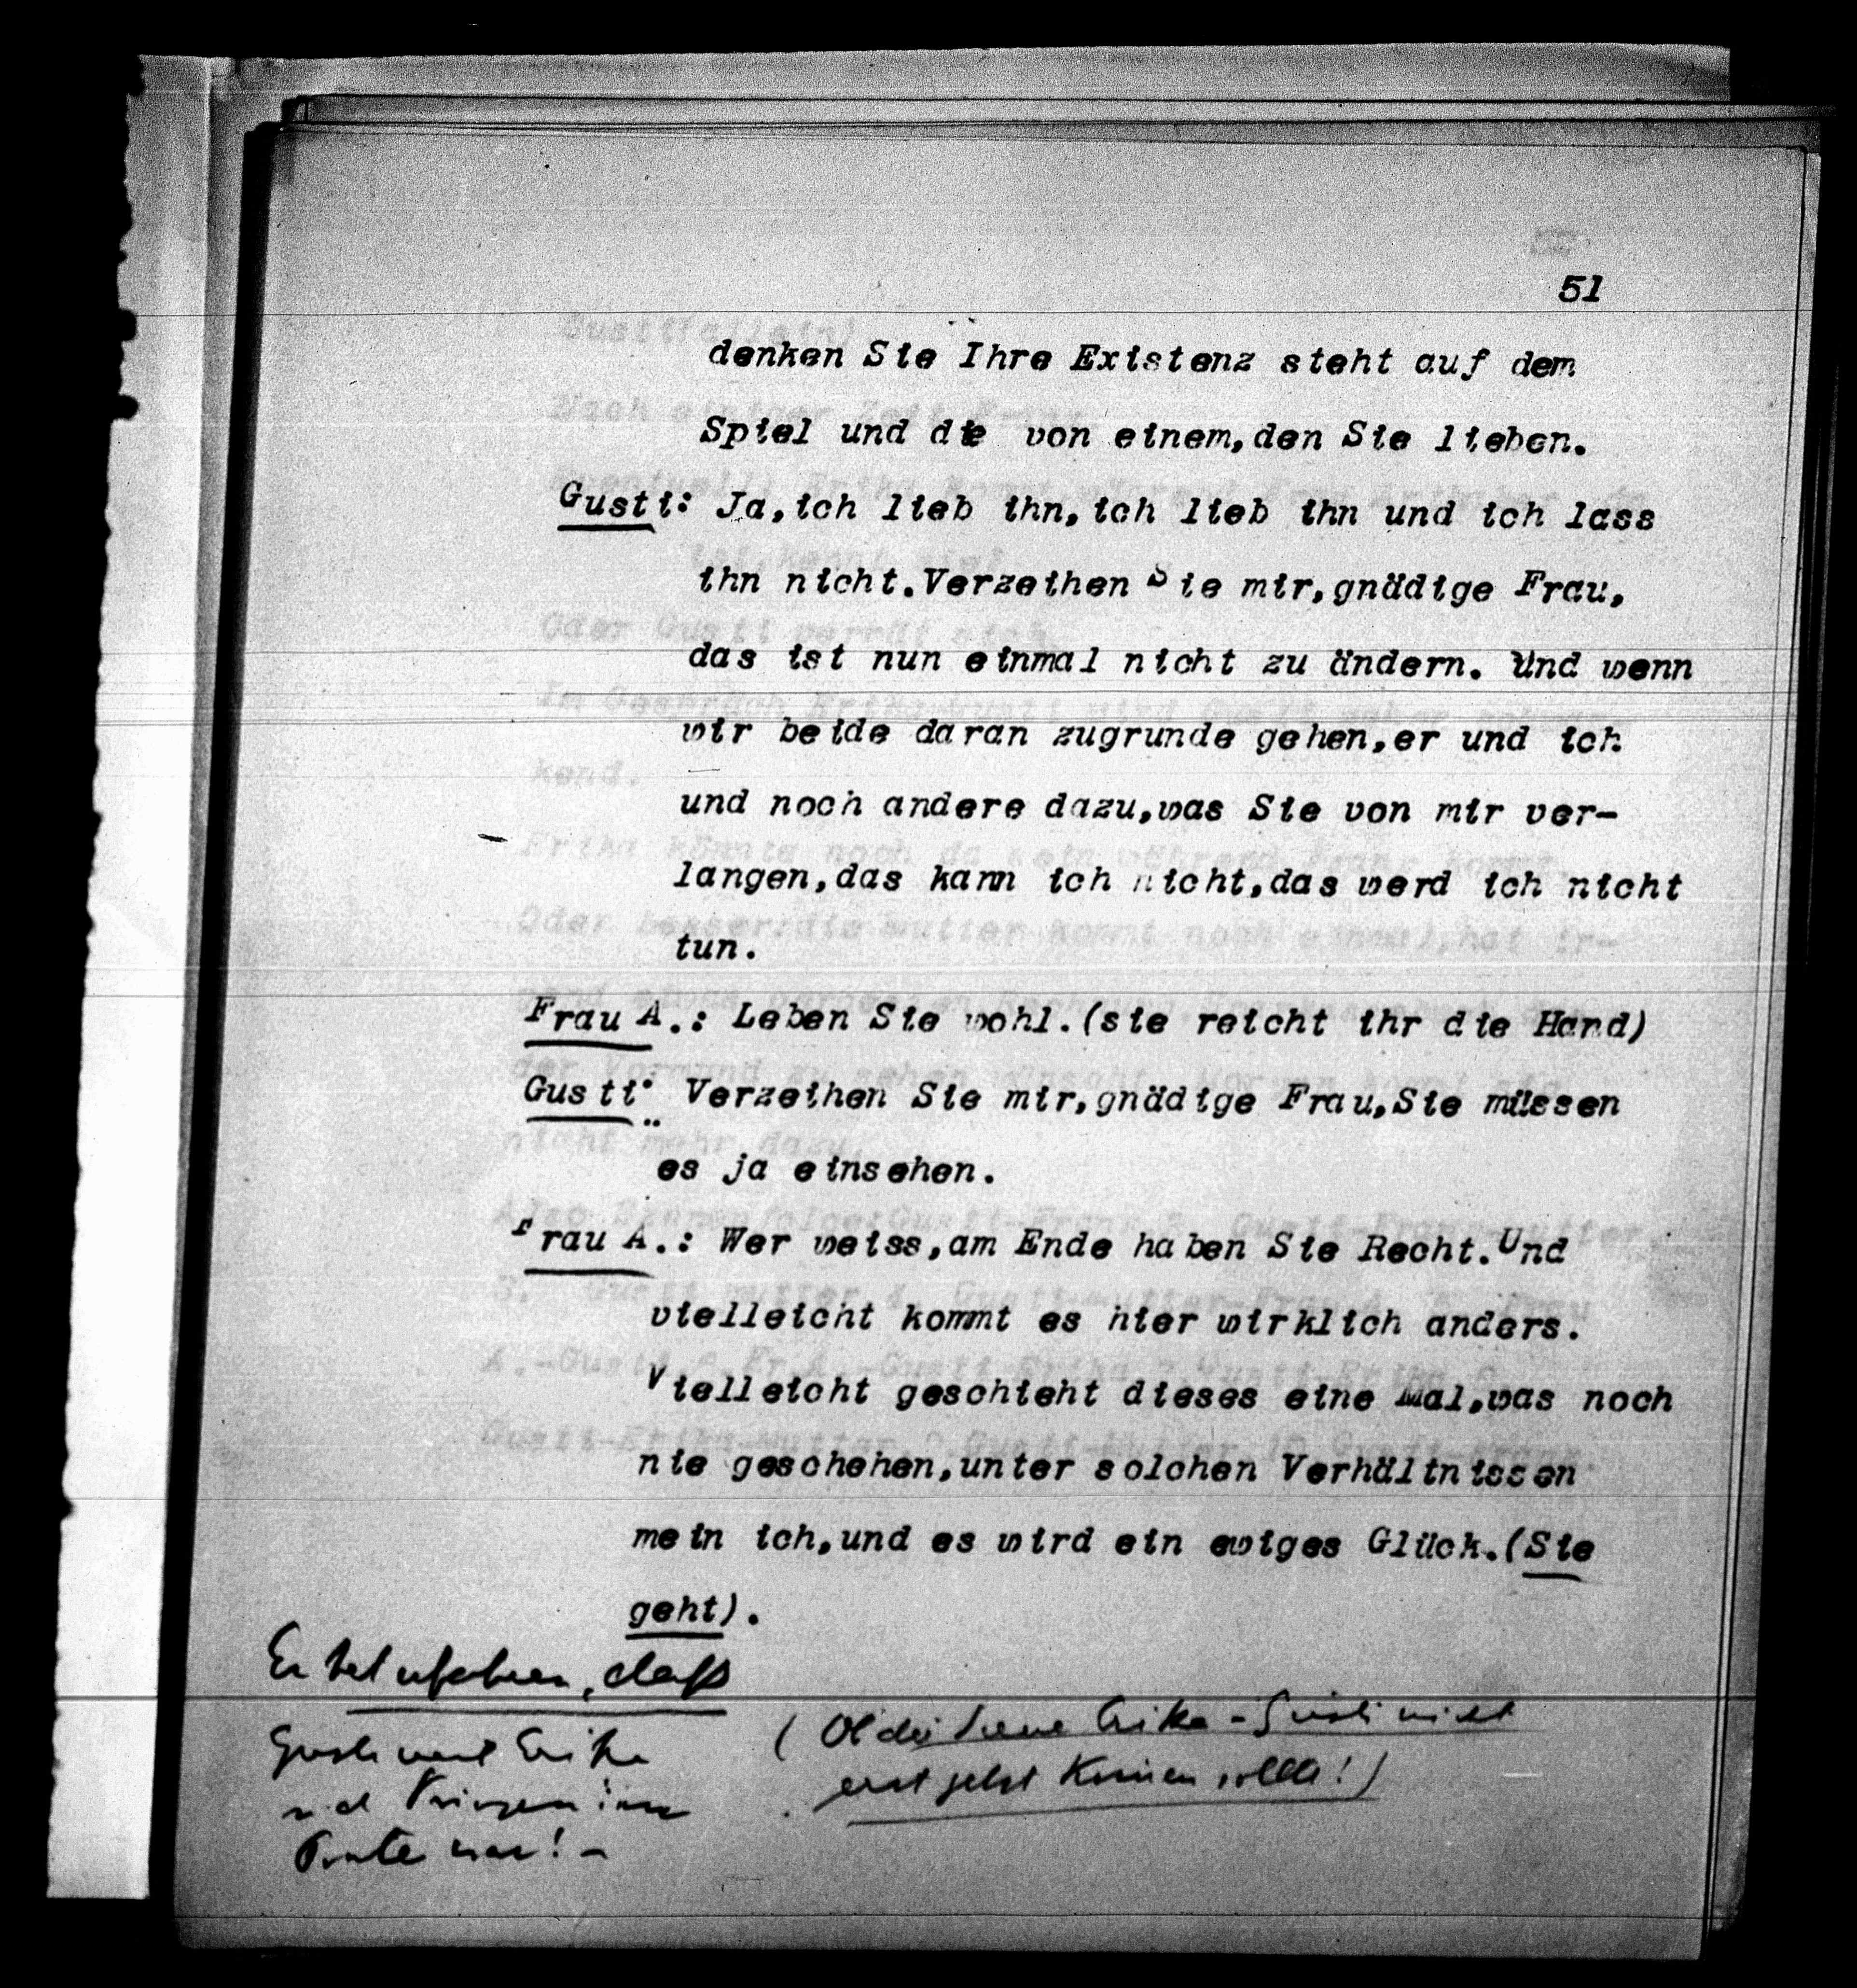 51
denken Sie Ihre Existenz steht auf dem
Spiel und die von einem,den Sie lieben.
Gusti: Ja,ich lieb ihn,ich lieb ihn und ich lass
ihn nicht.Verzeihen Sie mir,gnädige Frau,
das ist nun einmal nicht zu ändern. Und wenn
wir beide daran zugrunde gehen,er und ich
und noch andere dazu,was Sie von mir ver-
langen,das kann ich nicht,das werd ich nicht
tun.
Frau A.: Leben Sie wohl.(sie reicht ihr die Hand)
Gusti: Verzeihen Sie mir,gnädige Frau,Sie müssen
es ja einsehen.
Frau A.: Wer weiss,am Ende haben Sie Recht.Und
vielleicht kommt es hier wirklich anders.
Vielleicht geschieht dieses eine Mal,was noch
nie geschehen,unter solchen Verhältnissen
mein ich,und es wird ein ewiges Glück.(Sie
geht).
Er hat erfahren, dass
Gusti und Erika
(Ob die Scene Erika - Gusti nicht
erst jetzt kommen sollte!)